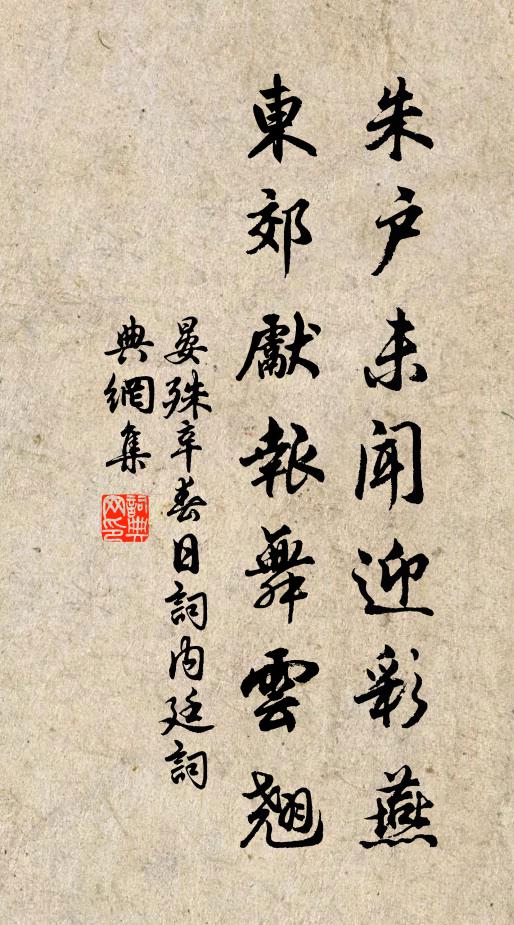 朱户未闻迎彩燕
東郊獻報舞雲翹
晏殊辛春日詞内廷詞
典網集
詞典網印